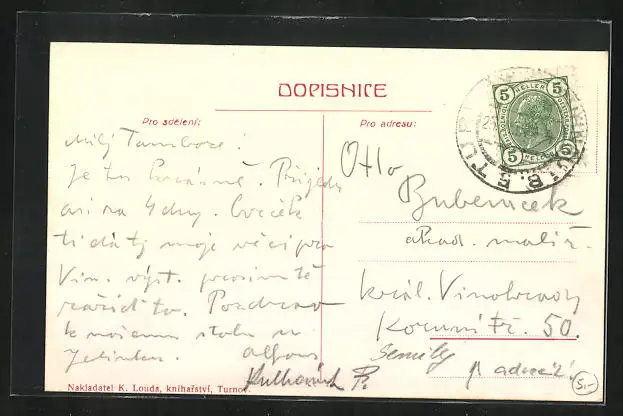 DOPISNICE
Pro sdělení:
Milý Tamboze!
Je tu krásně. Přijedu
asi na 4 dny.
ti dá ty moje věci pro
Vin. výst. prosím tě
zařiď to. Pozdrav
k našemu stolu u
Jelínka. Alfons
Pro adresu:
Otto
Bubeníček
akad. malíř.
král. Vinohrady
Korunní tř. 50.
Semily
5 HELLER 5
5 5
TURN
Nakladatel K. Louda, knihařství, Turnov.
5,-